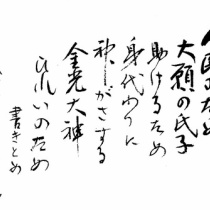 大願の氏子
助けるため
身代わりに
神がさする
金光大神
ひれいのため
書きとめ